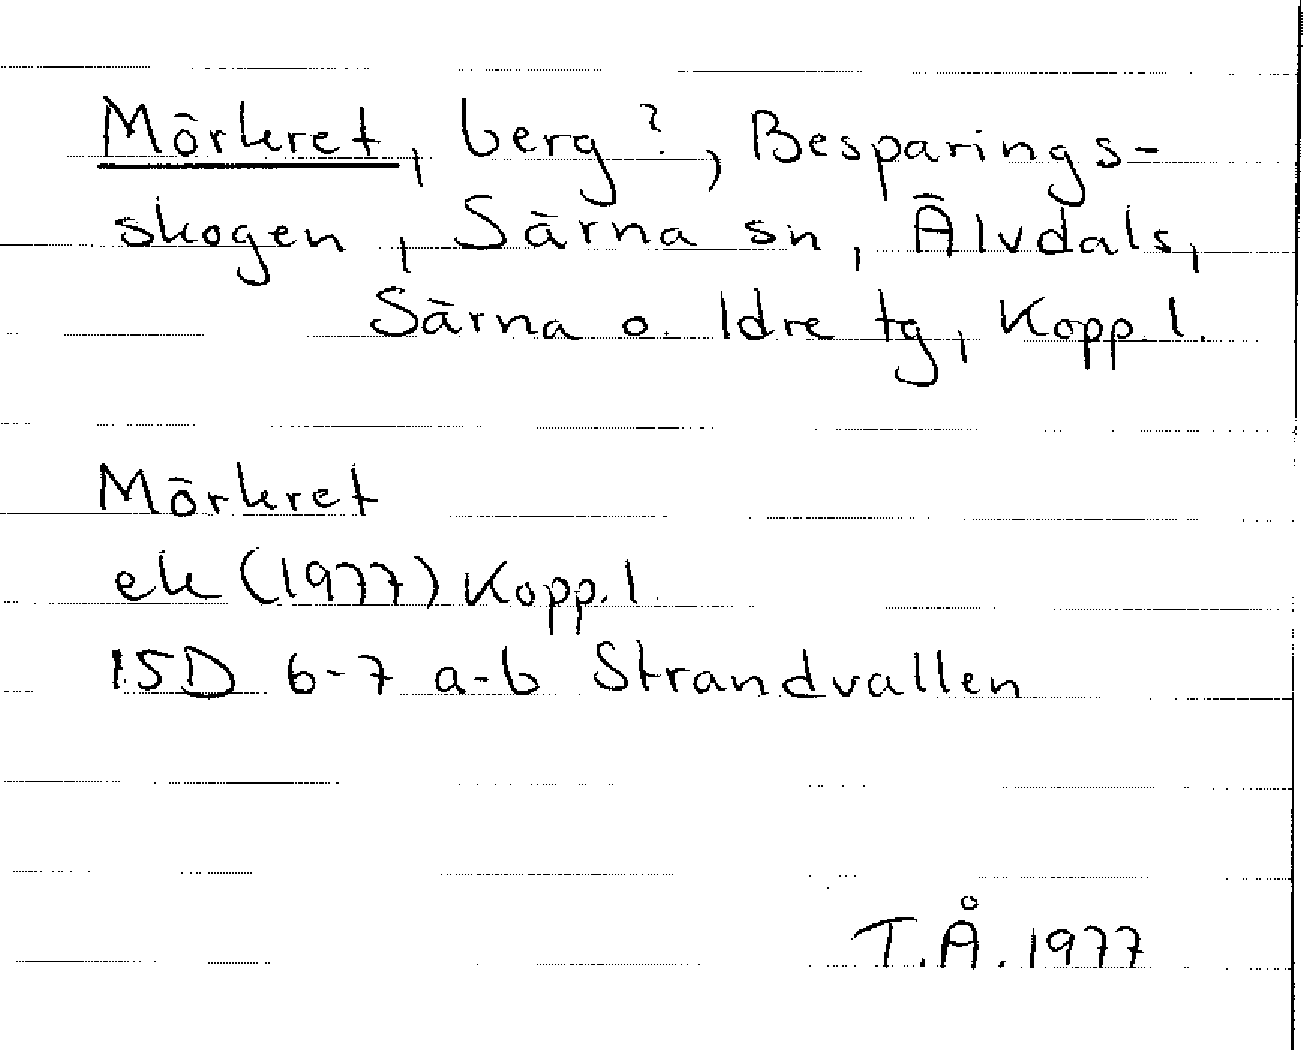 Mörkret, berg?, Besparings-
skogen, Särna sn, Älvdals,
Särna o. Idre tg, Kopp. l.
Mörkret
ek (1977) Kopp. l.
15D 6-7 a-b Strandvallen
T.Å. 1977